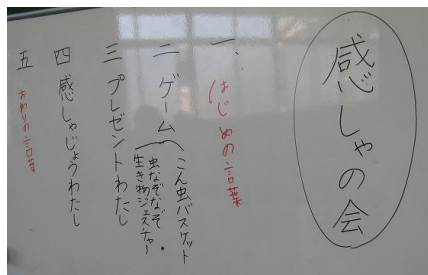 感しゃの会
一、はじめの言葉
二 ゲーム(こん虫バスケット
虫なぞなぞ・
生き物ジェスチャー
三 プレゼントわたし
四 感しゃじょうわたし
五 おわりの言葉